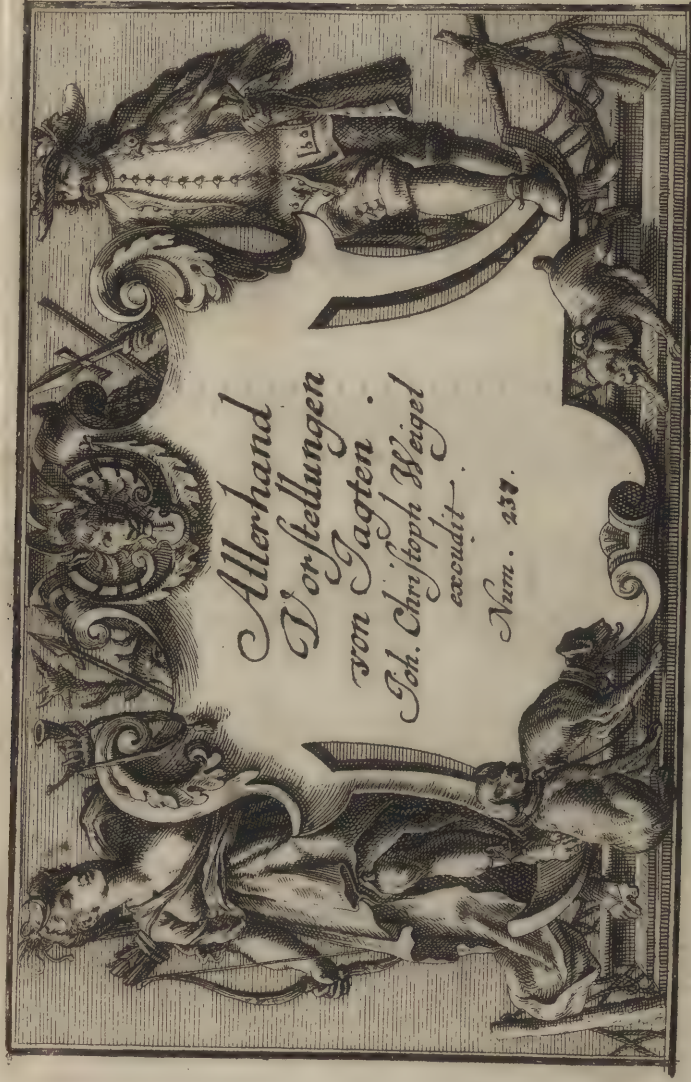 Allerhand
Vorſtellungen
von Jagten.
Joh. Chriſtoph Weigel
excudit.
Num. 237.